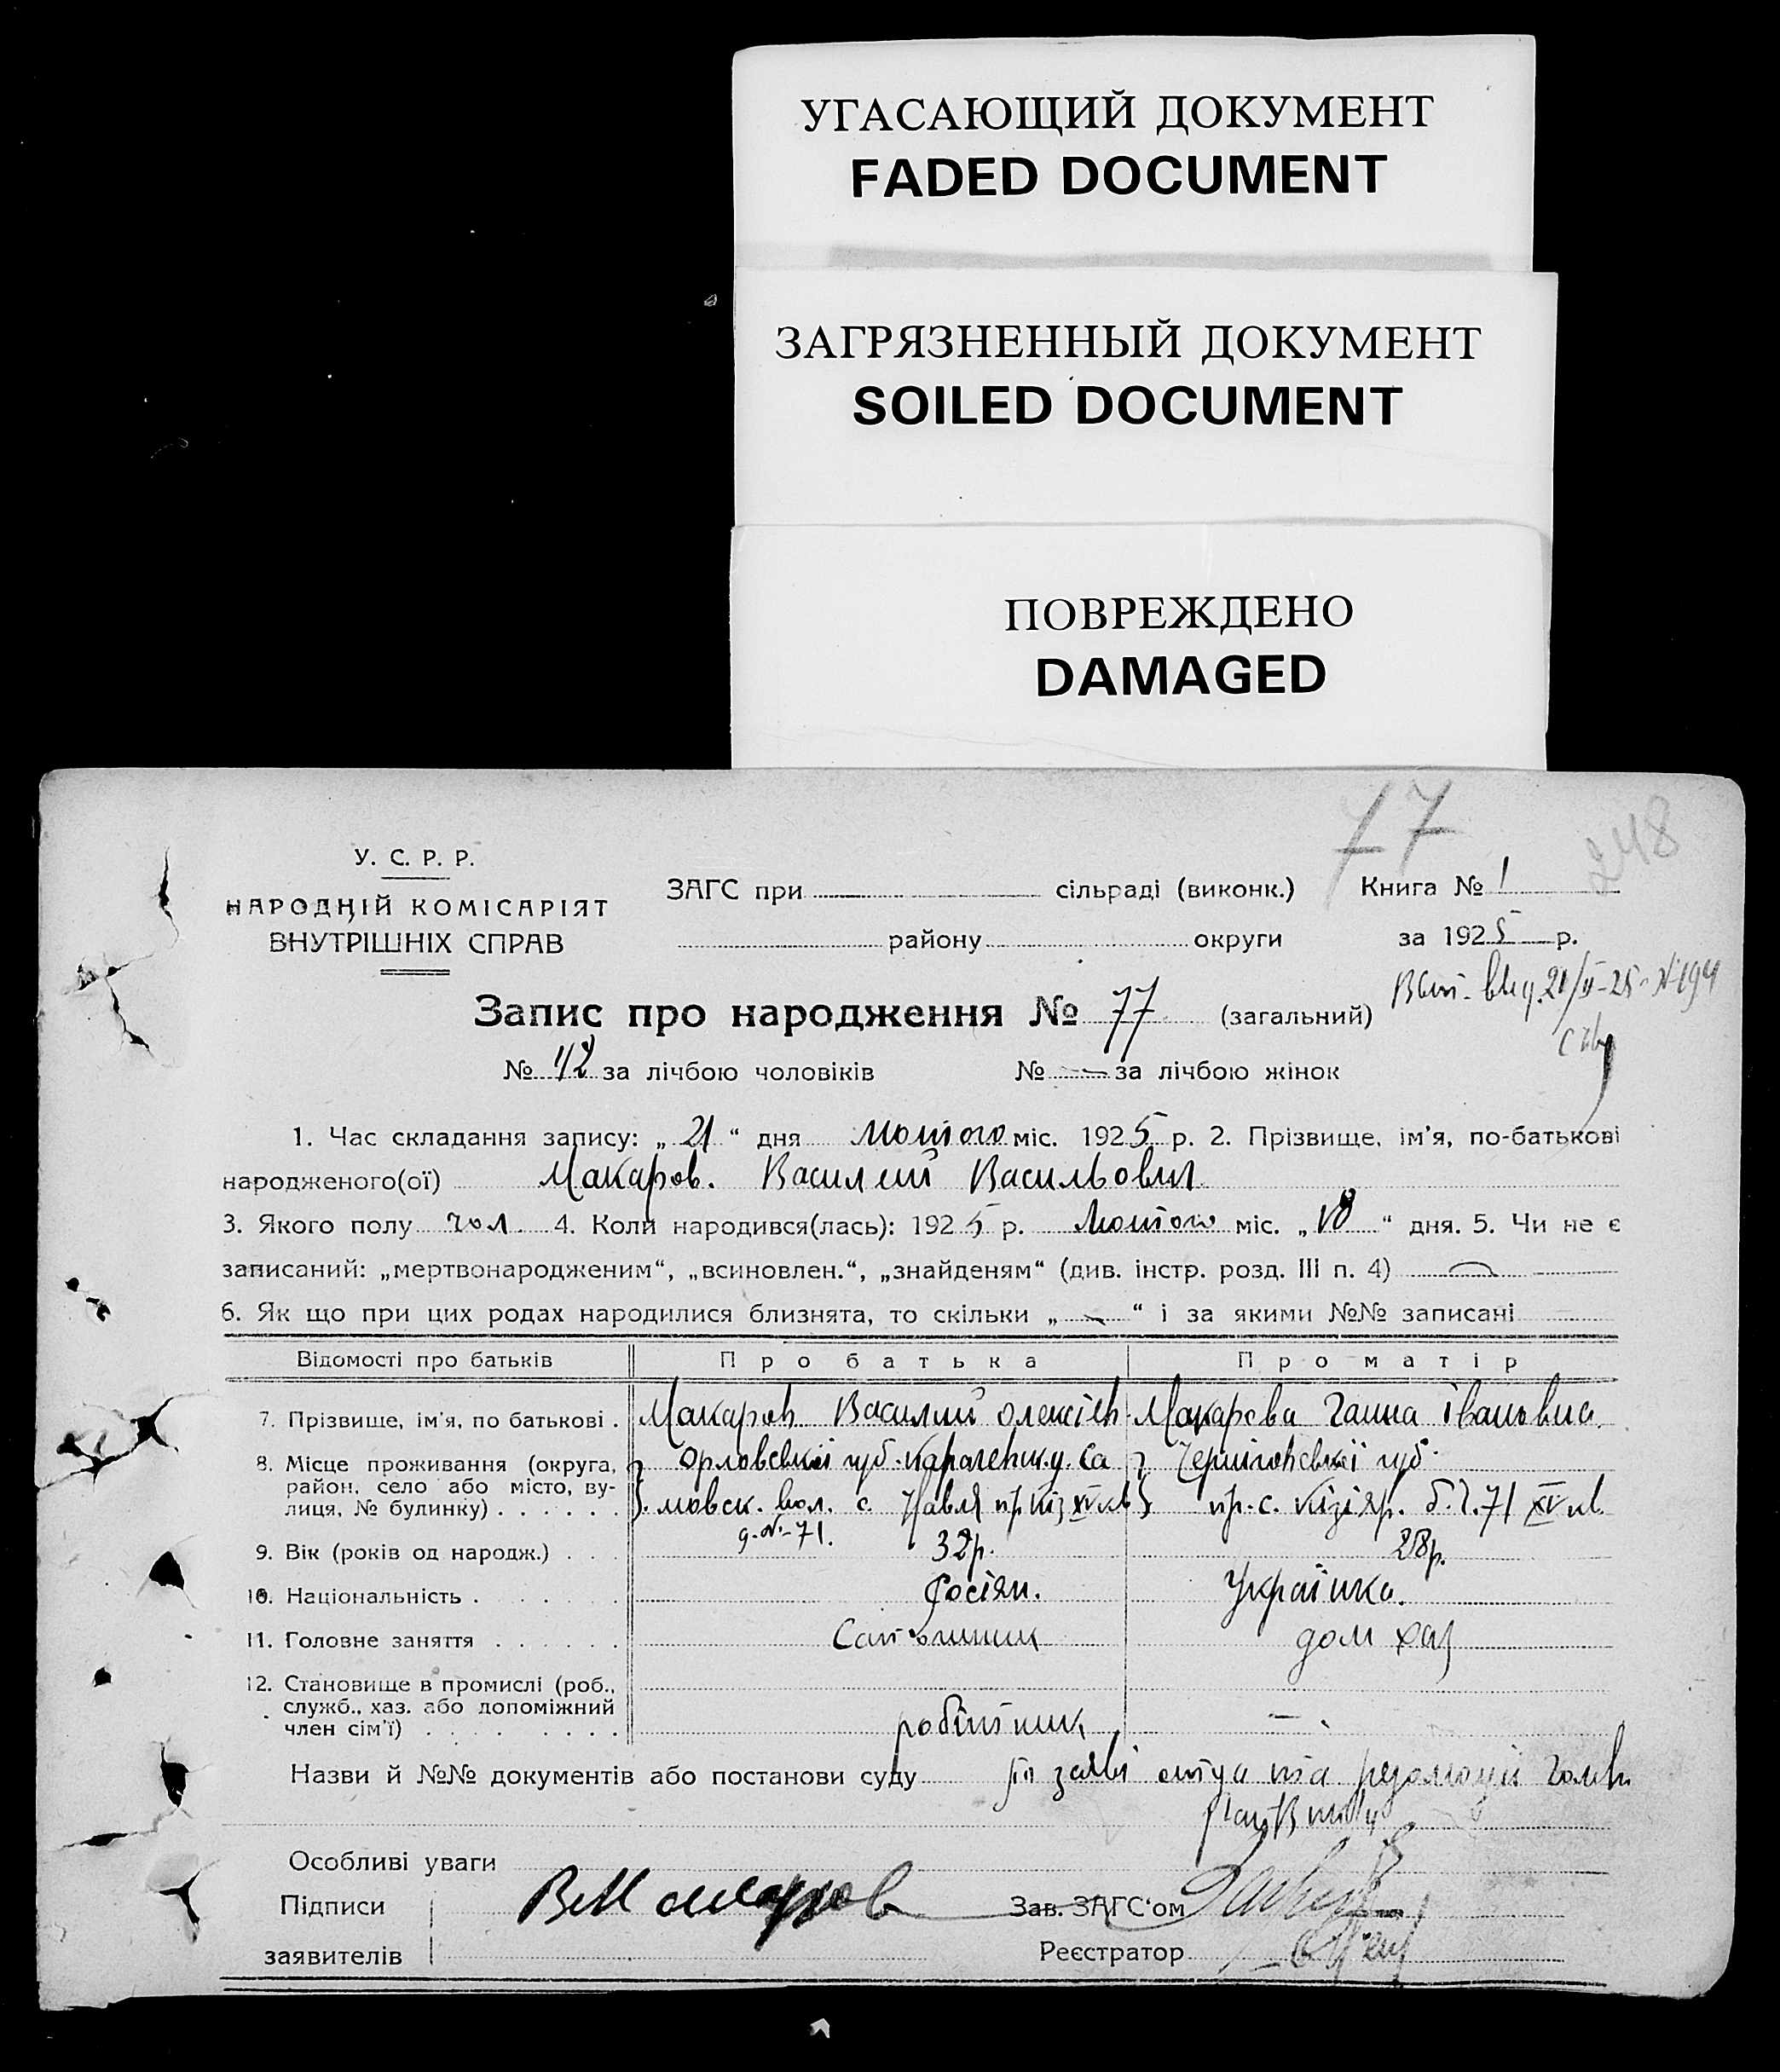 УГАСАЮЩИЙ ДОКУМЕНТ
FADED DOCUMENT
ЗАГРЯЗНЕННЫЙ ДОКУМЕНТ
SOILED DOCUMENT
ПОВРЕЖДЕНО
DAMAGED
77 248
У. С. Р. Р.
НАРОДНІЙ КОМІСАРІЯТ
ВНУТРІШНІХ СПРАВ
ЗАГС при сільраді (виконк.) Книга № 1
району округи за 1925 р.
Запис про народження № 77 (загальний)
№ 42 за лічбою чоловіків № — за лічбою жінок
1. Час складання запису: „21“ дня Лютого міс. 1925 р. 2. Прізвище, ім'я, по-батькові
народженого(ої) Макаров. Василий Васильович
3. Якого полу чол. 4. Коли народився(лась): 1925 р. Лютого міс. „18“ дня. 5. Чи не є
записаний: „мертвонародженим“, „всиновлен.“, „знайденям“ (див. інстр. розд. III п. 4)
6. Як що при цих родах народилися близнята, то скільки „—“ і за якими №№ записані
Відомості про батьків Про батька Про матір
7. Прізвище, ім'я, по батькові . Макаров Василий олексієв. Макарова Ганна Івановна
8. Місце проживання (округа, район, село або місто, вулиця, № будинку) . . . . . .
Орловської губ. у. Са
мовск. вол. с. Навля XV кв
д. №-71.
Черниговської губ.
пр. с. Кізіяр. б. ч. 71 XV кв.
9. Вік (років од народж.) . . . 32р. 28р.
10. Національність . . . . . . Росіян. Українка.
11. Головне заняття . . . . . . дом хаз
12. Становище в промислі (роб.,
служб., хаз. або допоміжний
член сім'ї) . . . . . . . робітник —
Назви й №№ документів або постанови суду по заяві отца та резолюції
Особливі уваги
Підписи В Макаров Зав. ЗАГС'ом
заявителів Реєстратор